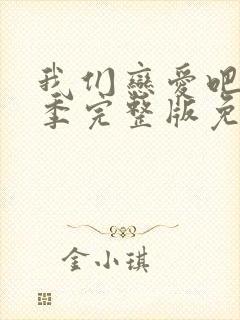 我们恋爱吧
季完整版免
金小琪